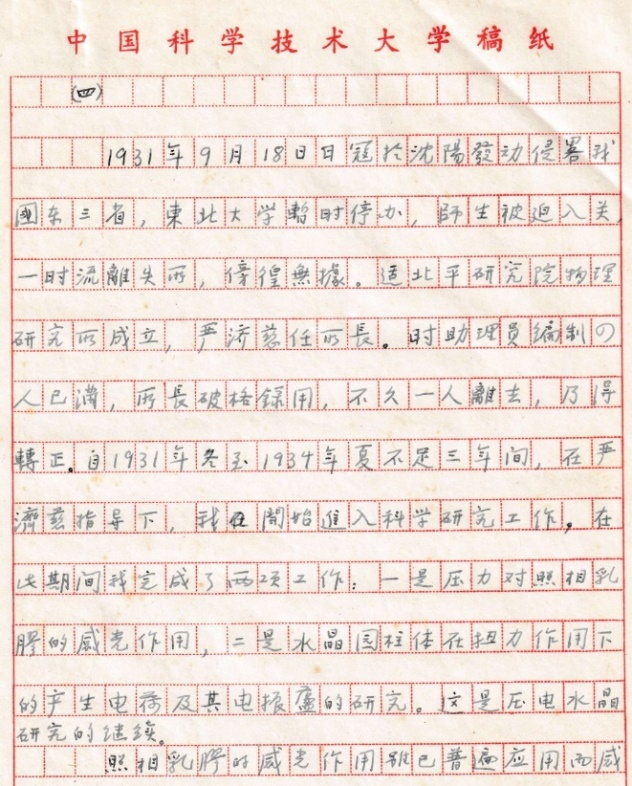 中国科学技术大学稿纸
(四)
1931年9月18日日冦於沈陽發动侵畧我
國东三省，東北大学暫时停办，師生被迫入关，
一时流離失所，傍徨無據。适北平研究院物理
研究所成立，严济慈任所長。时助理員编制の
人已满，所長破格録用，不久一人離去，乃得
轉正。自1931年冬至1934年夏不足三年间，在严
濟慈指导下，我開始進入科学研究工作。在
此期间我完成了两项工作：一是压力对照相乳
膠的感光作用，二是水晶园柱体在扭力作用下
的产生电荷及其电振盪的研究。这是压电水晶
研究的继续。
照相乳膠的感光作用雖已普遍应用而感